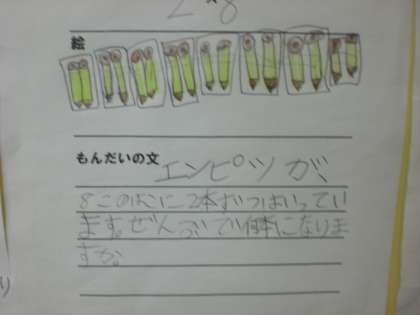 2×8
絵
もんだいの文 エンピツが、
8このはこに2本ずつはいってい
ます。ぜんぶで何本になりま
すか。
り